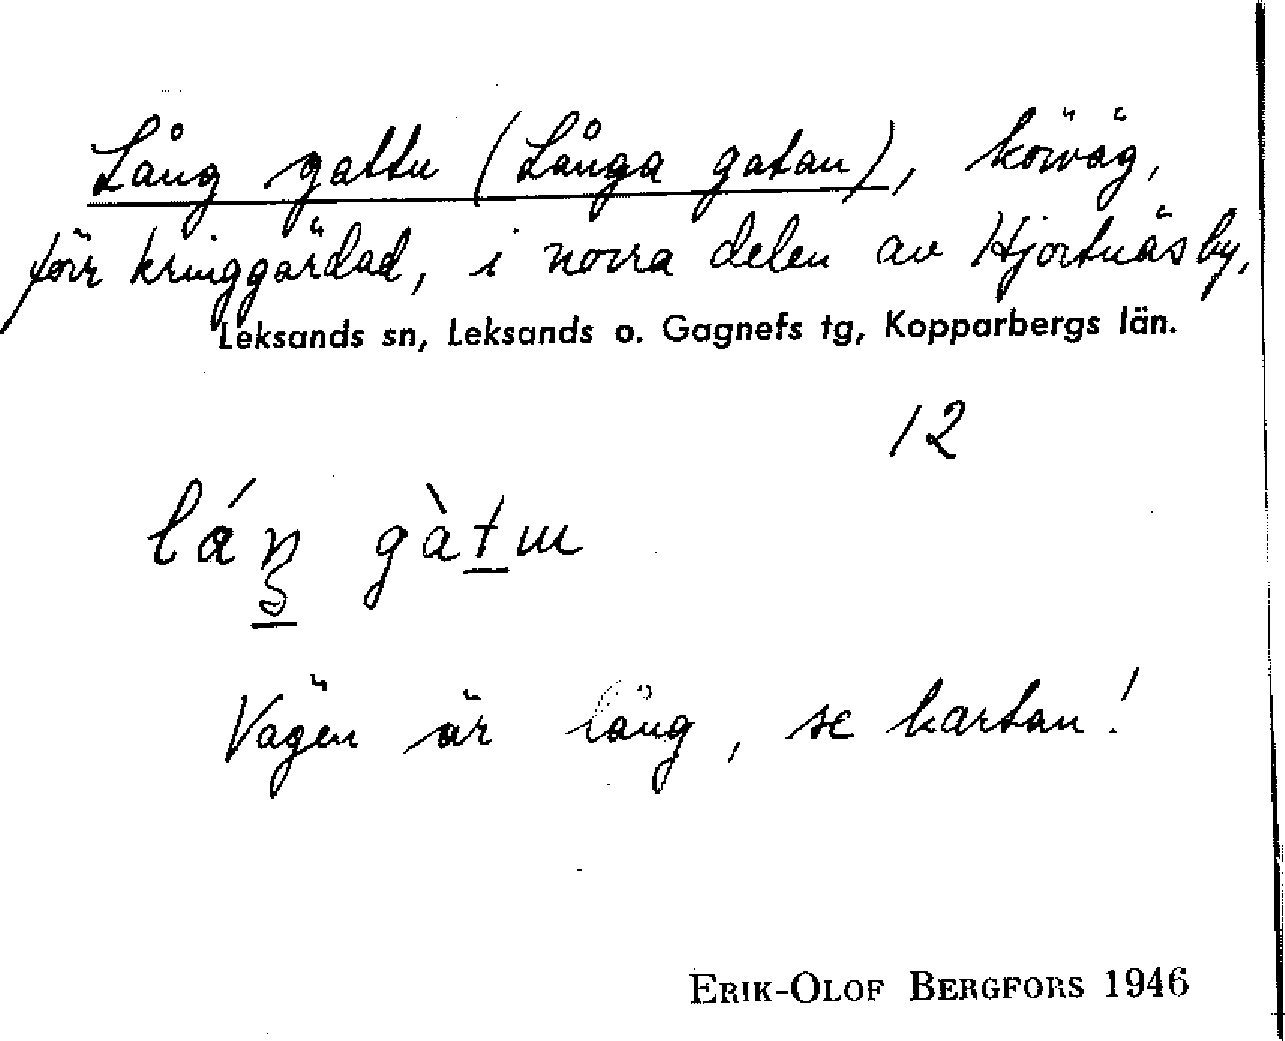 Lång gattu (Långa gatan), körväg,
förr kringgärdad, i norra delen av Hjortnäs by,
Leksands sn, Leksands o. Gagnefs tg, Kopparbergs län.
12
Vägen är lång, se kartan!
ERIK-OLOF BERGFORS 1946